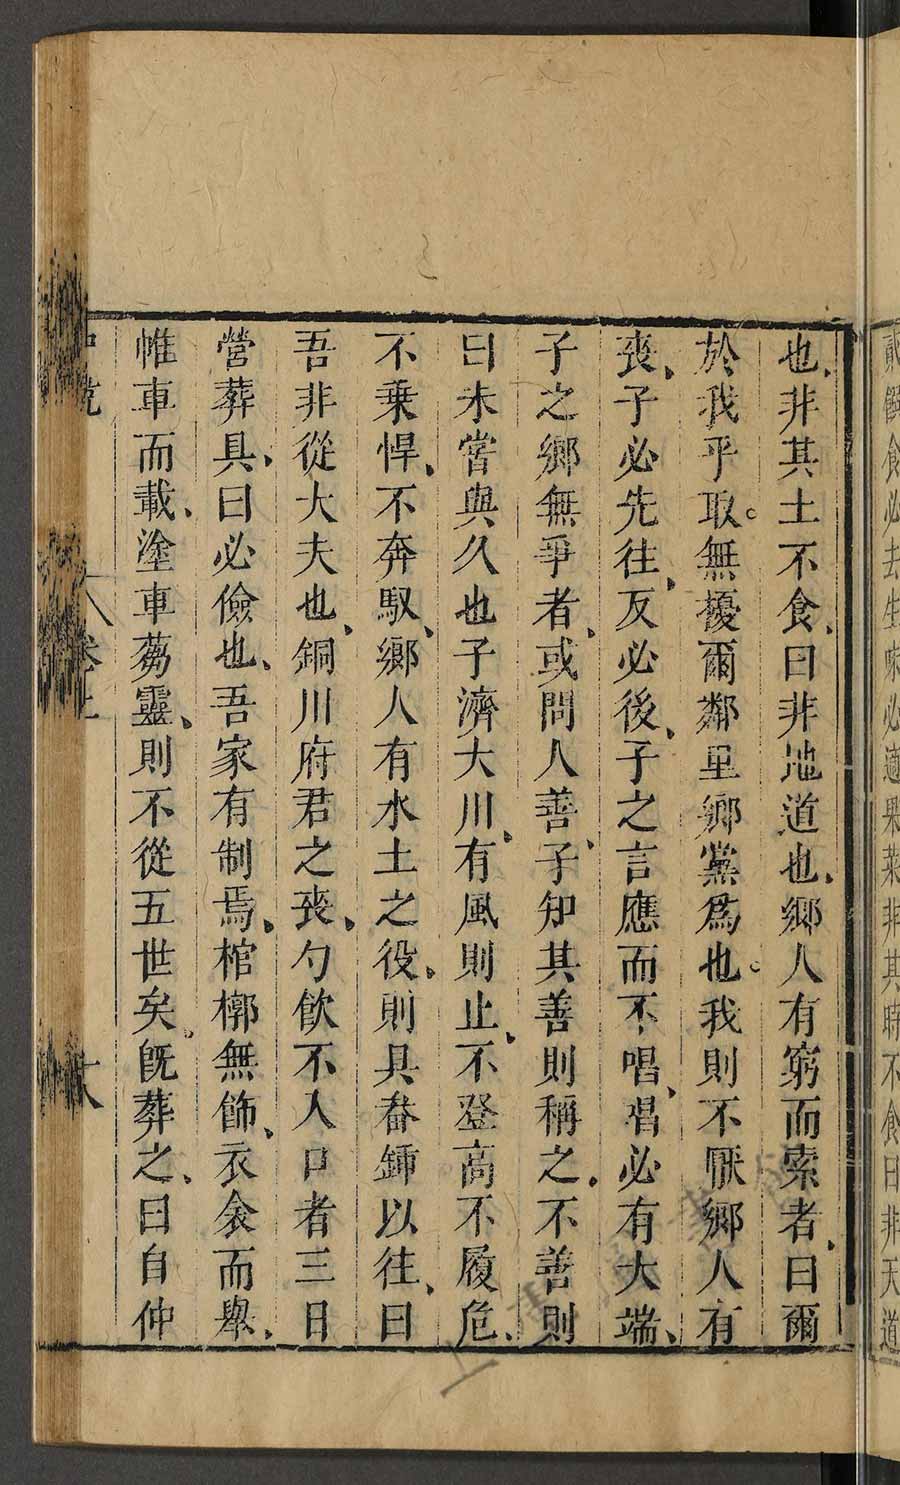 貳饌食必去生味必適果菜非其時不食曰非天道
也非其土不食曰非地道也鄉人有窮而索者曰爾
於我乎取無擾爾鄰里鄉黨爲也我則不厭鄉人有
喪子必先往反必後子之言應而不唱唱必有大端
子之鄉無爭者或問人善子知其善則稱之不善則
曰未嘗與久也子濟大川有風則止不登高不履危
不乗悍不奔馭鄉人有水土之役則具畚鍤以往曰
吾非從大夫也銅川府君之喪勺飮不入口者三日
營葬具曰必儉也吾家有制焉棺槨無飾衣衾而舉
帷車而載塗車蒭靈則不從五世矣旣葬之曰自仲
卷上